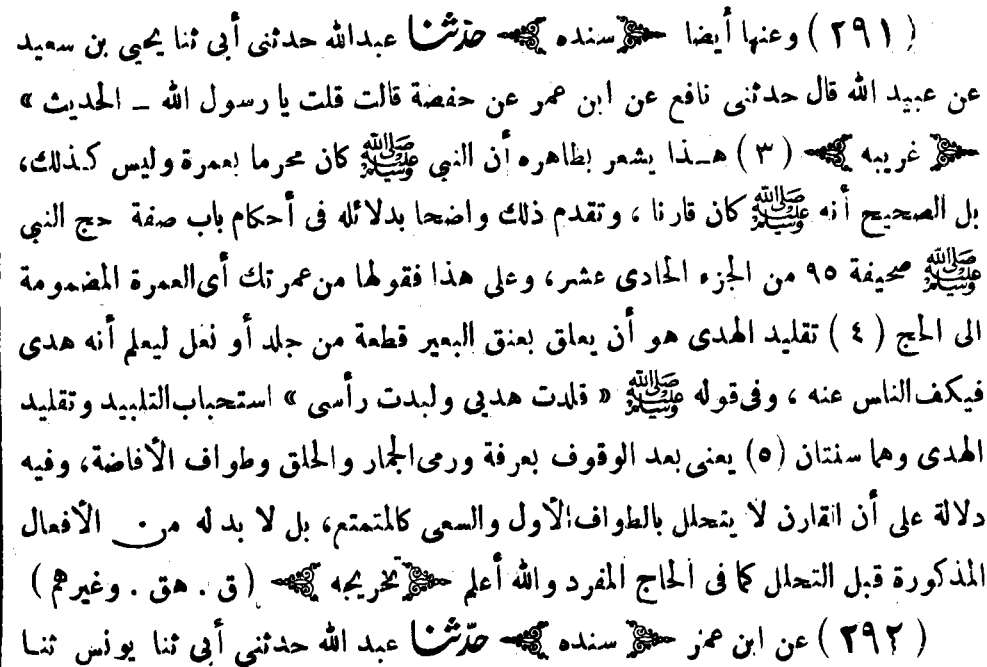 ( ٢٩١ ) وعنها أيضا ﴿ سنده ﴾ حدّثنا عبدالله حدثنى أبى ثنا يحيى بن سعيد
عن عبيد الله قال حدثنى نافع عن ابن عمر عن حفصة قالت قلت يا رسول الله ــ الحديث »
﴿ غريبه ﴾ ( ٣ ) هـذا يشعر بظاهره أن النبى ﷺ كان محرما بعمرة وليس كذلك،
بل الصحيح أنه ﷺ كان قارنا ، وتقدم ذلك واضحا بدلائله فى أحكام باب صفة حج النبى
ﷺ صحيفة ٩٥ من الجزء الحادى عشر، وعلى هذا فقولها من عمرتك أى العمرة المضمومة
الى الحج ( ٤ ) تقليد الهدى هو أن يعلق بعنق البعير قطعة من جلد أو نعل ليعلم أنه هدى
فيكف الناس عنه ، وفى قوله ﷺ « قلدت هديى ولبدت رأسى » استحباب التلبيد وتقليد
الهدى وهما سنتان (٥) يعنى بعد الوقوف بعرفة ورمى الجمار والحلق وطواف الأفاضة، وفيه
دلالة على أن القارن لا يتحلل بالطواف الأول والسعى كالمتمتع، بل لا بد له من الأفعال
المذكورة قبل التحلل كما فى الحاج المفرد والله أعلم ﴿ تخريجه ﴾ ( ق . هق . وغيرهم )
( ٢٩٢ ) عن ابن عمر ﴿ سنده ﴾ حدّثنا عبد الله حدثنى أبى ثنا يونس ثنـا